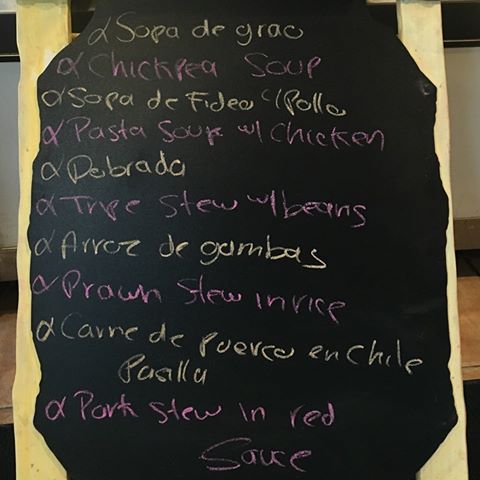 αSopa de grao
αChickpea Soup
αSopa de Fideo c/Pollo
αPasta Soup w/ Chicken
αDobrada
αTripe Stew w/beans
αArroz de gambas
αPrawn Stew in rice
αCarne de puerco en Chile
Pasilla
αPork Stew in red
Sauce